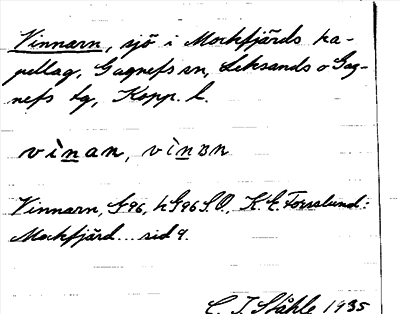 Vinnarn, sjö i Mockfjärds ka-
pellag, Gagnefs sn, Leksands o Gag-
nefs tg, Kopp. l.
vìnan, vìnɒn
Vinnarn, G96, hG96S.O., K.E. Forsslund:
Mockfjärd... sid 9.
C. I. Ståhle 1935